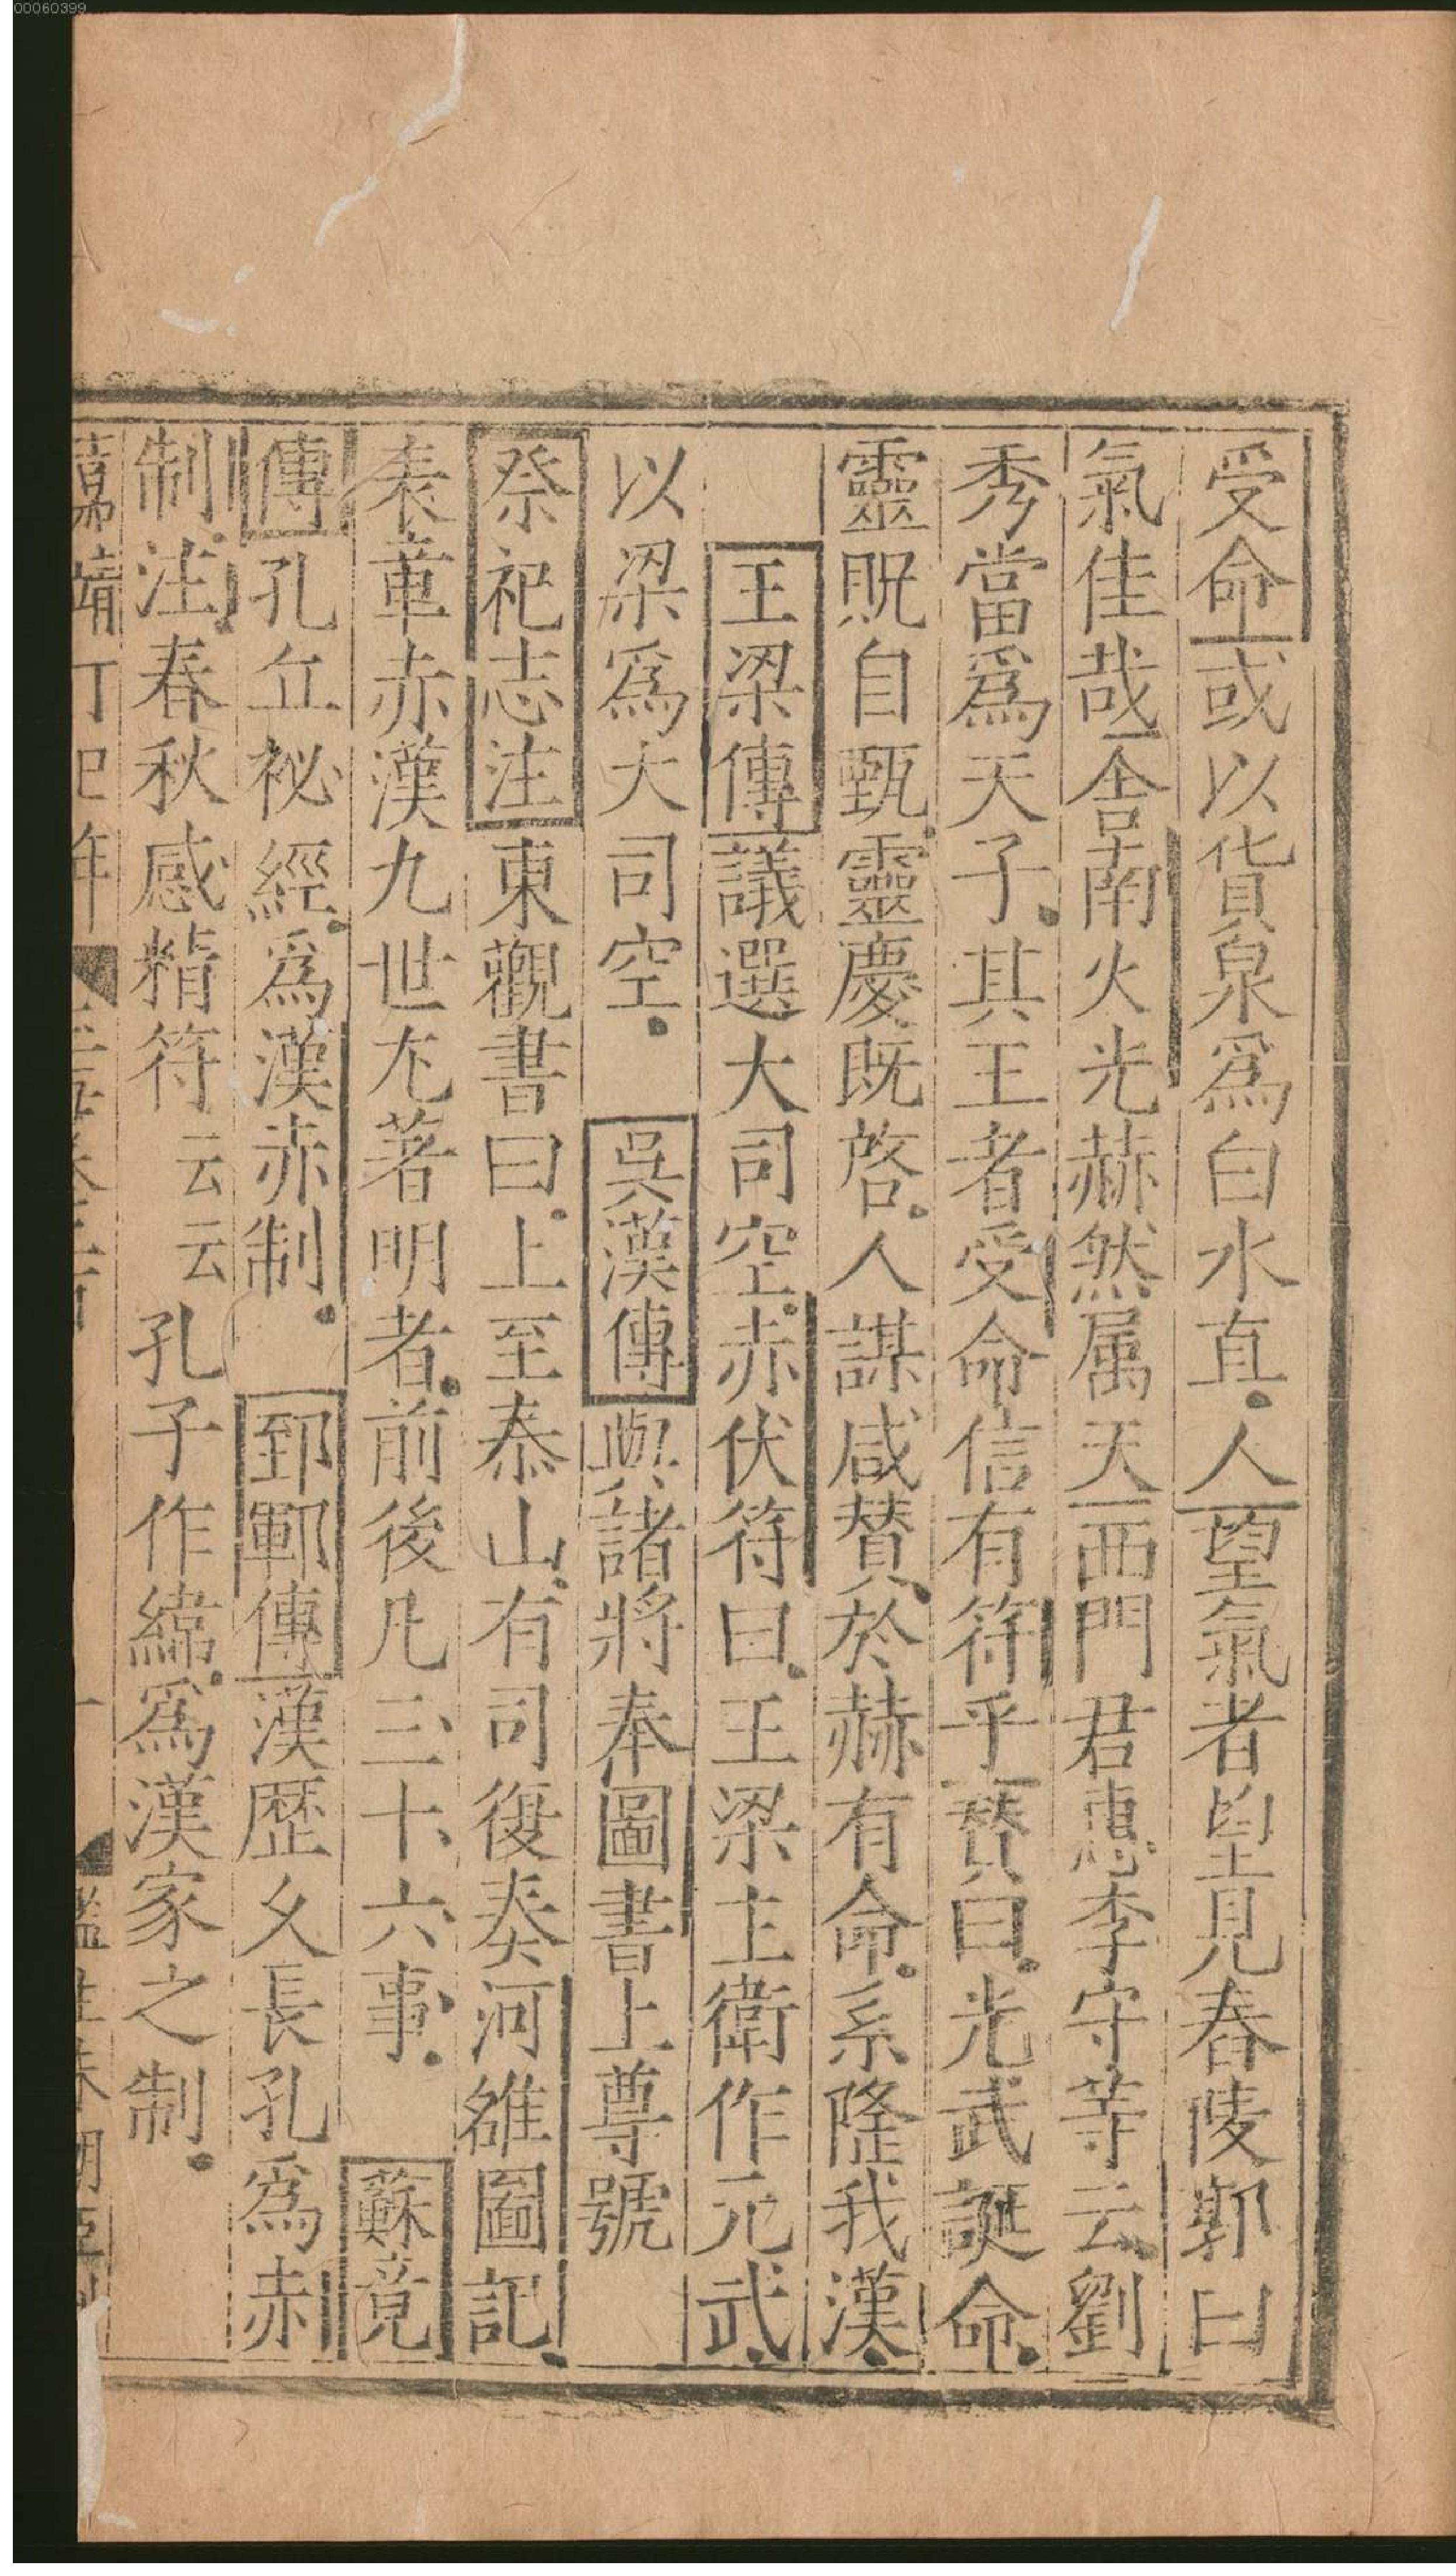 00060399
受命或以貨泉爲白水真人望氣者皆見舂陵郭曰
氣佳哉舍南火光赫然属天西門君惠李守等云劉
秀當爲天子其王者受命信有符乎賛曰光武誕命
靈貺自甄靈慶既啓人謀咸賛於赫有命系隆我漢
王梁傳議選大司空赤伏符曰王梁主衛作元武
以梁爲大司空　吳漢傳與諸將奉圖書上尊號
祭祀志注東觀書曰上至泰山有司復奏河雒圖記
表章赤漢九世尤著明者前後凡三十六事　蘇竟
傳孔丘祕經爲漢赤制　郅鄆傳漢歴久長孔爲赤
制注春秋感精符云云孔子作緯爲漢家之制
嘉靖丁巳年